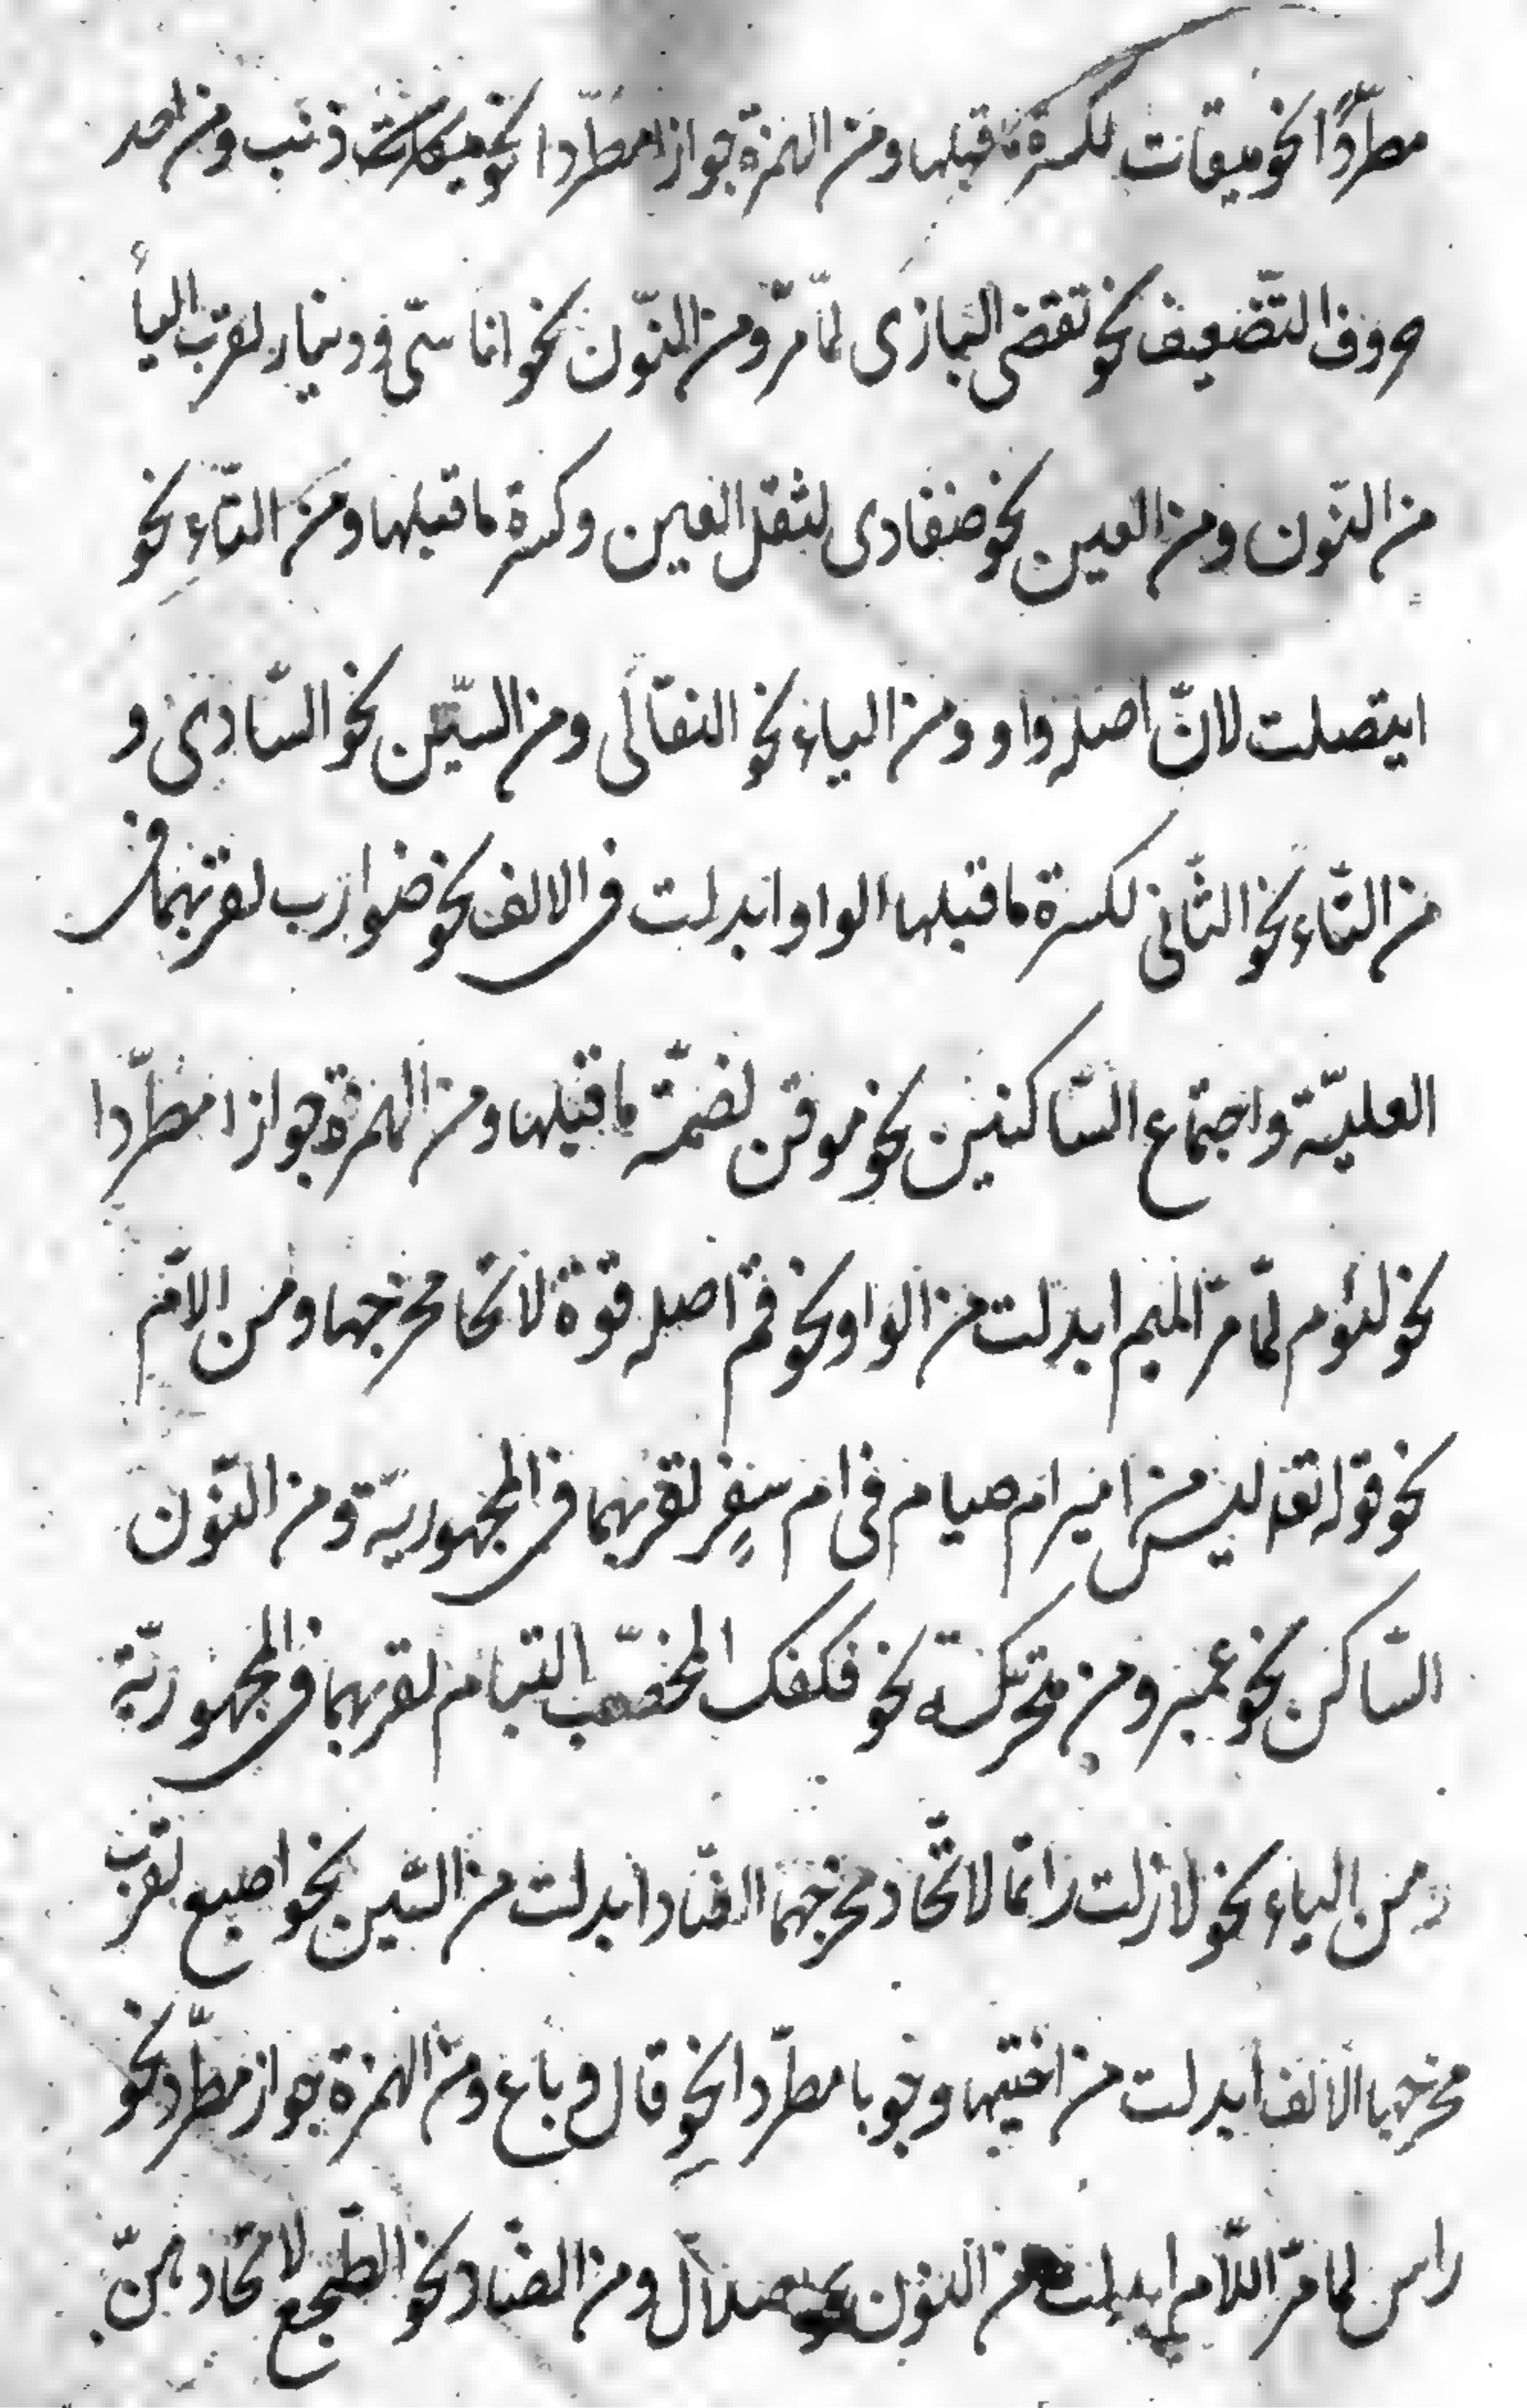 مطرّدًا نحو ميقات لكسرة ما قبلها ومن الهمزة جوازا مطرّدا نحو ذئب ومن احد
حروف التّضعيف نحو تقضى البازى لمّا مرّ ومن النّون نحو اناسىّ ودينار لقرب اليأ
من النّون ومن العين نحو ضفادى لثقل العين وكسرة ما قبلها ومن التّاءِ نحو
ايتصلت لانّ اصله واو ومن الباء نحو الثعالى ومن السّين نحو السّادى و
من الثّاء نحو الثّانى لكسرة ما قبلها الواو ابدلت فى الالف نحو ضوارب لقربهما فى
العليّة واجتماع السّاكنين نحو موقن لضمّة ما قبلها ومن الهمزة جوازا مطرّدا
نحو لئوم لمّا مرّ الميم ابدلت من الواو نحو فم اصله فوه لاتحا مخرجها ومن الام
نحو قوله تعا ليس من امبر ام صيام فى ام سفرٍ لقربهما فى المجهوريّة ومن النّون
السّاكن نحو عمبر ومن متحركة نحو فكفك المخضّب البنام لقربهما فى المجهوريّة
ومن الباء نحو لازلت راتما لاتّحاد مخرجهما الصّاد ابدلت من السّين نحو اصبع لقرب
مخرجها الالف ابدلت من اختيها وجوبا مطرّدا نحوِ قال و باع ومن الهمزة جواز مطرّد نحو
راس لما مرّ اللّام ابدلت من النون نحو اصيلال ومن الضّاد نحو الطّجع لاتحادهنّ